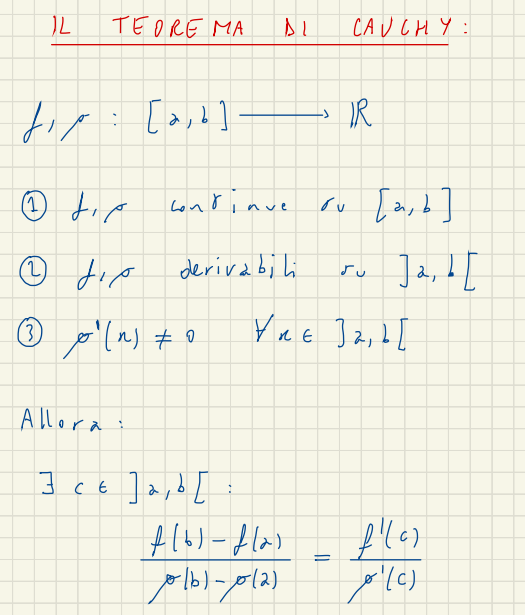 IL TEOREMA DI CAUCHY:
f, g : [a,b] ⟶ ℝ
① f, g continue su [a,b]
② f, g derivabili su ]a,b[
③ g'(x) ≠ 0 ∀x ∈ ]a,b[
Allora:
∃ c ∈ ]a,b[ :
f(b) - f(a) / g(b) - g(a) = f'(c) / g'(c)